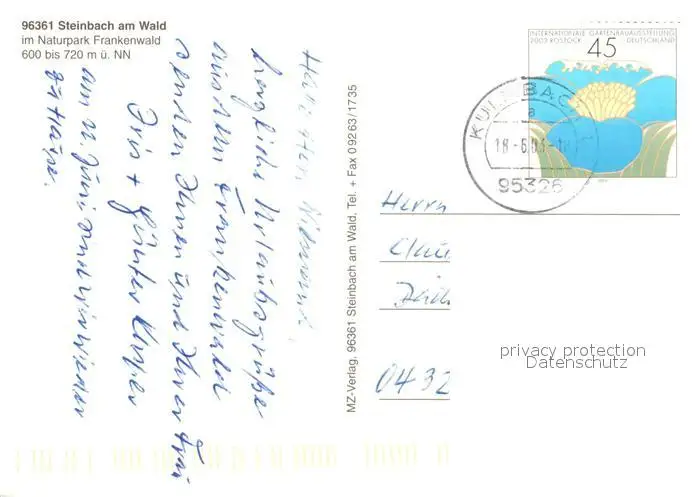 96361 Steinbach am Wald
im Naturpark Frankenwald
600 bis 720 m ü. NN
herzliche Urlaubsgrüße
aus dem Frankenwald
senden Ihnen und Ihrer Frau
Iris + Günter
am 22. Juni sind wir wieder
zuhause.
MZ-Verlag, 96361 Steinbach am Wald, Tel. + Fax 09263/1735
INTERNATIONALE GARTENBAUAUSSTELLUNG
2003 ROSTOCK DEUTSCHLAND
45
KULMBACH
a
18-6.03-18
95326
Herrn
Clau
0432
privacy protection
Datenschutz